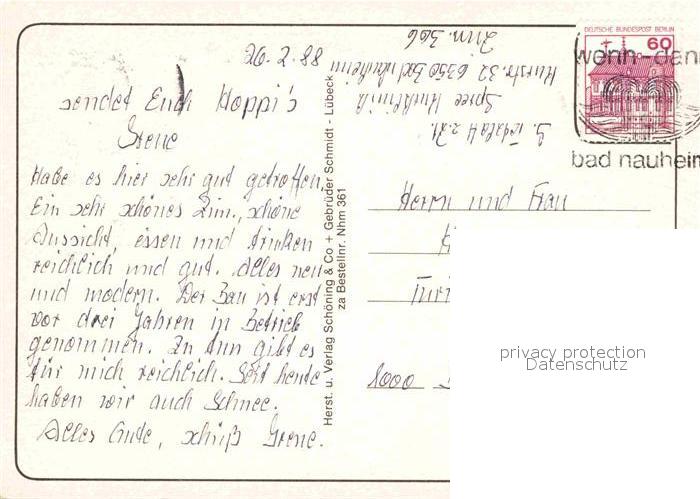 26.2.88
sendet Euch Hoppi's
Grene
Habe es hier sehr gut getroffen.
Ein sehr schönes Zim., schöne
Aussicht, essen und trinken
reichlich und gut. Alles neu
und modern. Der Bau ist erst
vor drei Jahren in Betrieb
genommen. Zu tun gibt es
für mich reichlich. Seit heute
haben wir auch Schnee.
Alles Gute, schüß Grene.
Herst. u. Verlag Schöning & Co + Gebrüder Schmidt - Lübeck
za Bestellnr. Nhm 361
z. Zt.
Kurstr. 32 6350 Bad Nauheim
Zim. 306
DEUTSCHE BUNDESPOST BERLIN
60
wenn-dann
bad nauheim
Herrn und Frau
1000
privacy protection
Datenschutz